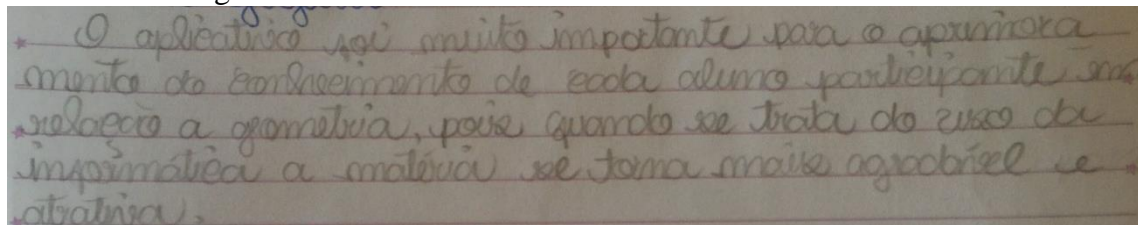 O aplicativo foi muito importante para o aprimora
mento do conhecimento de cada aluno participante em
relação a geometria, pois quando se trata do uso da
informática a matéria se torna mais agradável e
atrativa.